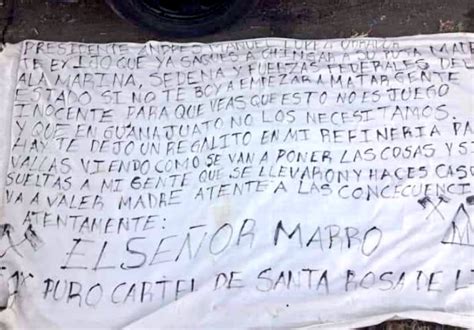 PRESIDENTE ANDRES MANUEL LOPEZ OBRADOR
TE EXIJO QUE YA SAQUES A CHINGAR A SU PUTA MAD
ALA MARINA, SEDENA Y FUELZAS FEDERALES DEL
ESTADO SI NO TE BOY A EMPEZAR A MATAR GENTE
INOCENTE PARA QUE VEAS QUE ESTO NO ES JUEGO
Y QUE EN GUANAJUATO NO LOS NECESITAMOS.
HAY TE DEJO UN REGALITO EN MI REFINERIA PA
VALLAS VIENDO COMO SE VAN A PONER LAS COSAS Y SI
SUELTAS A MI GENTE QUE SE LLEVARON Y HACES CASO
VA A VALER MADRE ATENTE A LAS CONCECUENCI
ATENTAMENTE:
EL SEÑOR MARRO
PURO CARTEL DE SANTA ROSA DE L